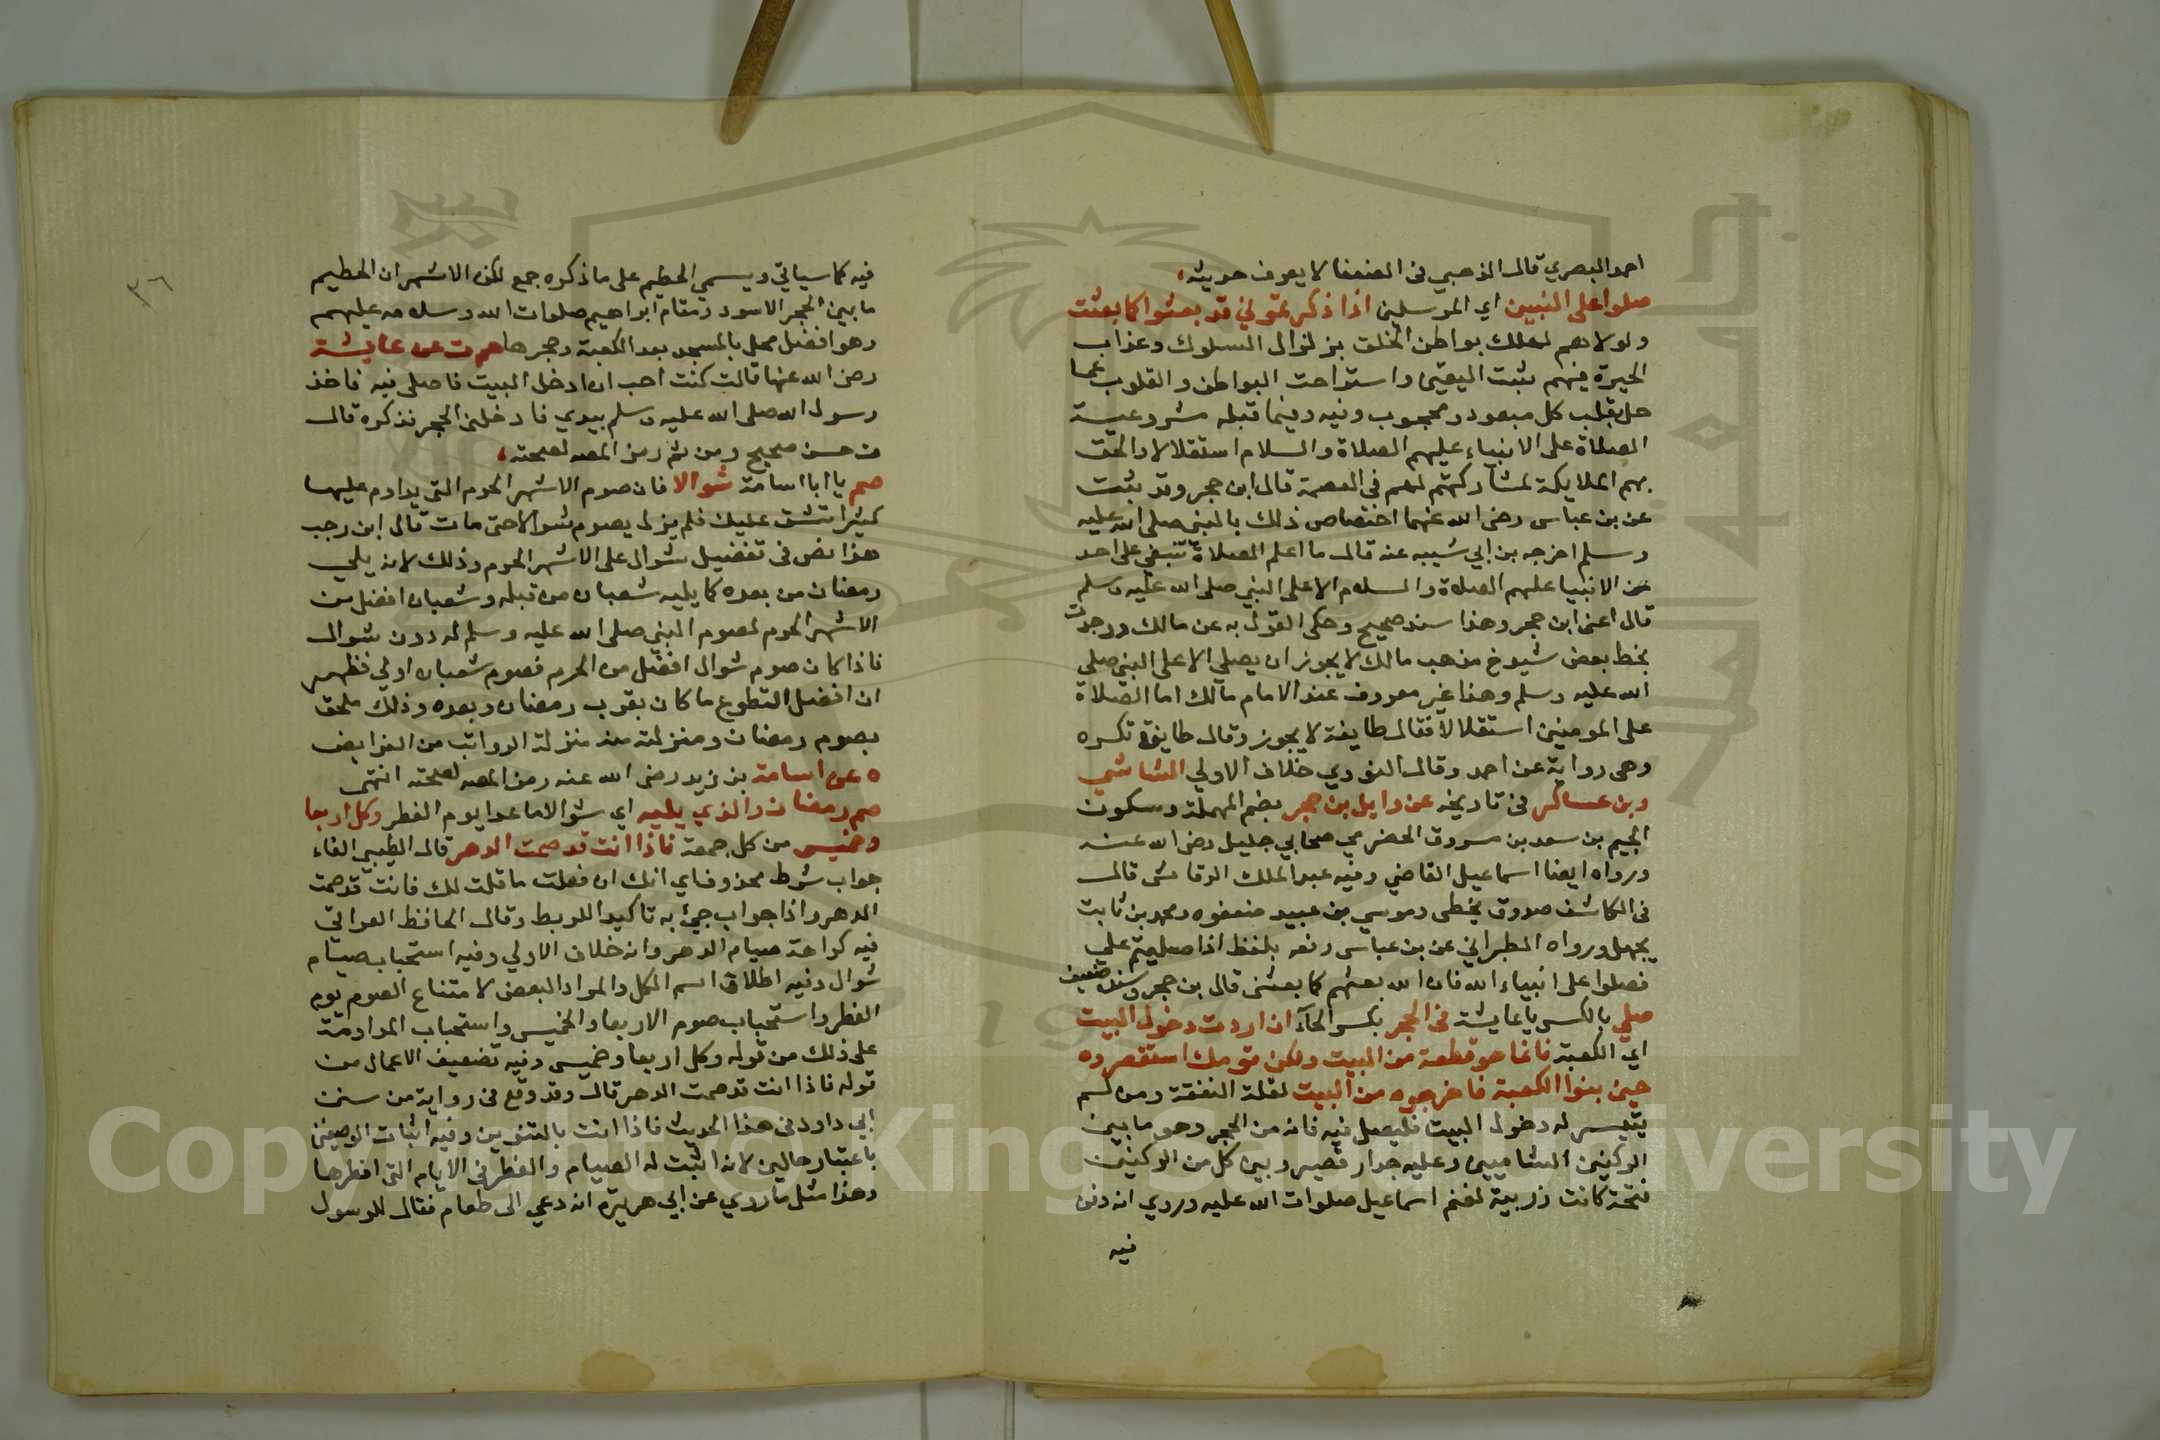 احمد البصري قال الذهبي في الضعفا لا يعرف حديثه
صلوا على النبيين اي المرسلين اذا ذكرتموني قد بعثوا كما بعثت
ولولا هم لهلك بواطن الخلق بزلزال السلوك وعذاب
الحيرة فبهم ثبت اليقين واستراحت البواطن والقلوب عما
حل بقلب كل مبعود ومحجوب وفيه وفيما قبله مشروعية
الصلاة على الانبياء عليهم الصلاة والسلام استقلالا والحق
بهم الملايكة لمشاركتهم لهم في العصمة قال ابن حجر وقد ثبت
عن بن عباس رضي الله عنهما اختصاص ذلك بالنبي صلى الله عليه
وسلم اخرجه بن ابي شيبه عنه قال ما اعلم الصلاة تنبغي على احد
من الانبيا عليهم الصلاة والسلام الا على النبي صلى الله عليه وسلم
قال اعني ابن حجر وهذا سند صحيح وحكي القول به عن مالك ووجدت
بخط بعض شيوخ مذهب مالك لا يجوز ان يصلي الا على النبي صلى
الله عليه وسلم وهذا غير معروف عند الامام مالك اما الصلاة
على المومنين استقلالا فقال طايفة لا يجوز وقال طايفة تكره
وهي رواية عن احمد وقال النووي خلاف الاولي الشاشي
وبن عساكر في تاريخه عن وايل بن حجر بضم المهملة وسكون
الجيم بن سعد بن مسروق الحضرمي صحابي جليل رضي الله عنه
ورواه ايضا اسماعيل القاضي وفيه عبد الملك الرقاشى قال
في الكاشف صدوق يخطي وموسي بن عبيد ضعفوه ومحمد بن ثابت
يجهل ورواه الطبراني عن بن عباس رفعه بلفظ اذا صليتم علي
فصلوا على انبياء الله فان الله بعثهم كما بعثني قال بن حجر وسنده ضعيف
صلي بالكسر يا عايشة في الحجر بكسر الحآء ان اردت دخول البيت
اي الكعبة فانما هو قطعة من البيت ولكن قومك استقصروه
حين بنوا الكعبة فاخرجوه من البيت لقلة النفقة ومن لم
يتيسر له دخول البيت فليصل فيه فانه من الحجر وهو ما بين
الركنين الشاميين وعليه جدار قصير وبين كل من الركنين
فتحة كانت زريبة لغنم اسماعيل صلوات الله عليه وروي انه دفن
فيه
٣٦
فيه كما سياتي ويسمي الحطيم على ما ذكره جمع لكن الاشهر ان الحطيم
ما بين الحجر الاسود ومقام ابراهيم صلوات الله وسلامه عليهم
وهو افضل محل بالمسجد بعد الكعبة وحجرها حم ت عن عايشة
رضي الله عنها قالت كنت احب ان ادخل البيت فاصلي فيه فاخذ
رسول الله صلى الله عليه وسلم بيدي فادخلني الحجر فذكره قال
ت حسن صحيح ومن ثم رمز المص لصحته
صم يا ابا اسامة شوالا فان صوم الاشهر الحرم التي يداوم عليها
كثيرا تشق عليك فلم يزل يصوم شوالا حتى مات قال ابن رجب
هذا نص في تفضيل شوال على الاشهر الحرم وذلك لانه يلي
رمضان من بعده كما يليه شعبان من قبله وشعبان افضل من
الاشهر الحرم لصوم النبي صلى الله عليه وسلم له دون شوال
فاذا كان صوم شوال افضل من الحرم فصوم شعبان اولي فظهر
ان افضل التطوع ما كان بقرب رمضان وبعده وذلك ملحق
بصوم رمضان ومنزلته منه منزلة الرواتب من الفرايض
ه عن اسامة بن زيد رضي الله عنه رمز المص لصحته انتهى
صم رمضان والذي يليه اي شوالا ما عدا يوم الفطر وكل اربعا
وخميس من كل جمعة فاذا انت قد صمت الدهر قال الطيبي الفاء
جواب شرط محذوف اي انك ان فعلت ما قلت لك فانت قد صمت
الدهر واذا جواب جيء به تاكيدا للربط وقال الحافظ العراقي
فيه كراهة صيام الدهر وانه خلاف الاولي وفيه استحباب صيام
شوال وفيه اطلاق اسم الكل والمراد البعض لامتناع الصوم يوم
الفطر واستحباب صوم الاربعا والخميس واستحباب المداومة
على ذلك من قوله وكل اربعا وخميس وفيه تضعيف الاعمال من
قوله فاذا انت قد صمت الدهر قال وقد وقع في رواية من سنن
ابي داود في هذا الحديث فاذا انت بالتنوين وفيه اثبات الوصفين
باعتبار حالين لانه اثبت له الصيام والفطر في الايام التي افطرها
وهذا مثل ما روي عن ابي هريرة انه دعي الى طعام فقال للرسول
Copyright © King Saud University